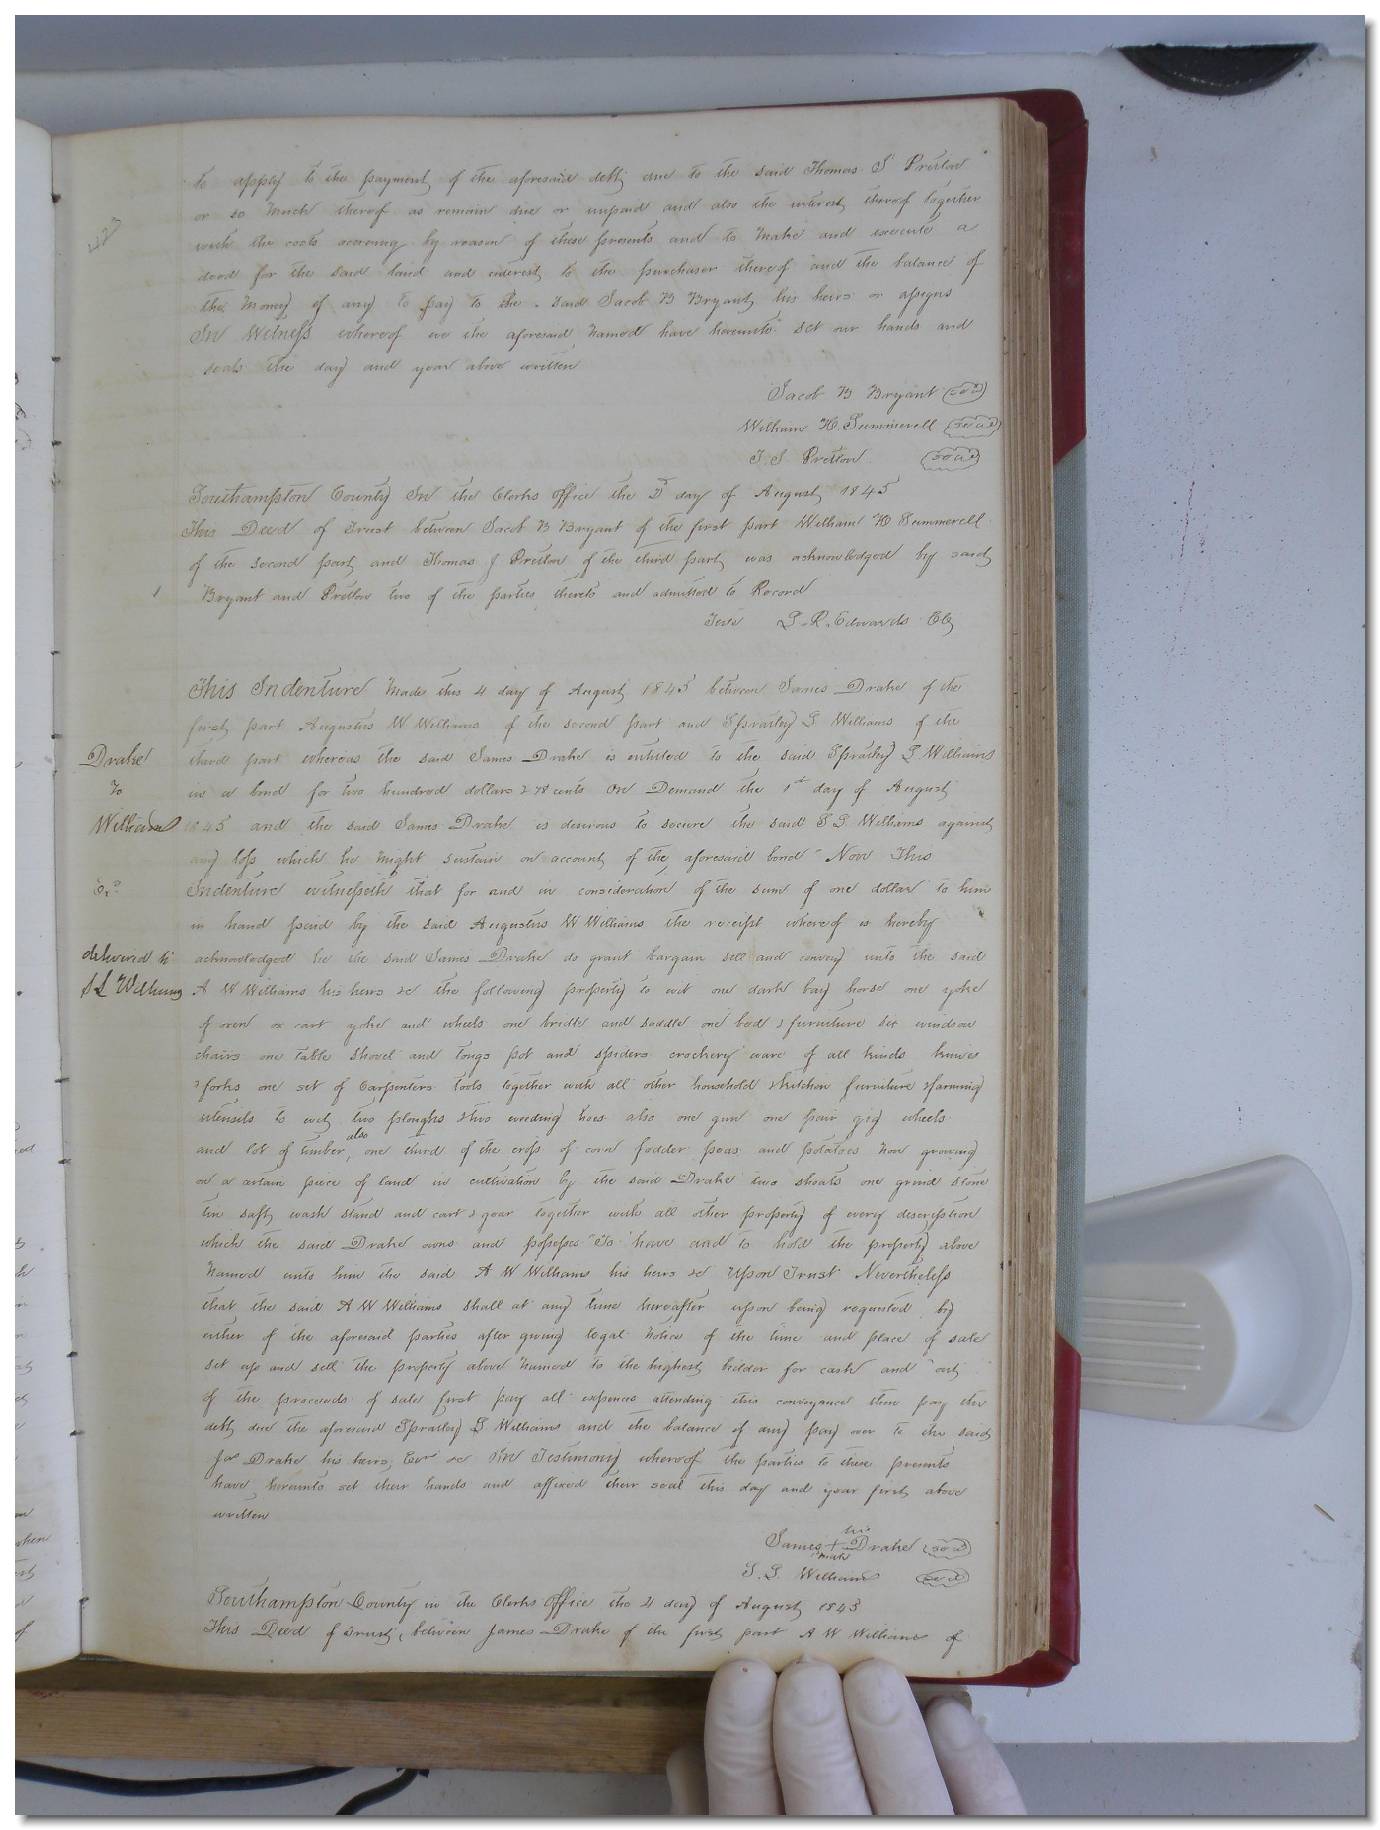 to apply to the payment of the aforesaid debt due to the said Thomas J Pretlow
or so much thereof as remain due or unpaid and also the interest thereof together
with the costs accruing by reason of these presents and to make and execute a
deed for the said land and interest to the purchaser thereof and the balance of
the money if any to pay to the said Jacob B Bryant his heirs or assigns
In Witness whereof we the aforesaid named have hereunto set our hands and
seals the day and year above written
Jacob B Bryant (seal)
William H. Summerell (seal)
T. J. Pretlow (seal)
Southampton County In the Clerks office the day of August 1845
This Deed of Trust between Jacob B Bryant of the first part William H Summerell
of the second part and Thomas J Pretlow of the third part was acknowledged by said
Bryant and Pretlow two of the parties thereto and admitted to Record
Teste L. R. Edwards Clk
This Indenture Made this 4 day of August 1845 between James Drake of the
first part Augustus W Williams of the second part and Spratley L Williams of the
Drake
third part whereas the said James Drake is entitled to the said Spratley L Williams
To
in a bond for two hundred dollars & 78 cents On Demand the 1st day of August
Williams
1845 and the said James Drake is desirous to secure the said S L Williams against
any loss which he might sustain on account of the aforesaid bond Now This
Exd
Indenture witnesseth that for and in consideration of the sum of one dollar to him
in hand paid by the said Augustus W Williams the receipt whereof is hereby
delivered to
acknowledged he the said James Drake do grant bargain sell and convey unto the said
S L Williams
A W Williams his heirs &c the following property to wit one dark bay horse one yoke
of oxen ox cart yoke and wheels one bridle and saddle one bed & furniture six windsor
chairs one table shovel and tongs pot and spiders crockery ware of all kinds knives
& forks one set of Carpenters tools together with all other household & kitchen furniture & farming
utensils to wit, two ploughs & two weeding hoes also one gun one pair gig wheels
and lot of timber, also one third of the crop of corn fodder peas and potatoes now growing
on a certain piece of land in cultivation by the said Drake two shoats one grind stone
tin safe wash stand and cart & gear together with all other property of every description
which the said Drake owns and possesses To have and to hold the property above
named unto him the said A W Williams his heirs &c Upon Trust Nevertheless
that the said A W Williams shall at any time hereafter upon being requested by
either of the aforesaid parties after giving legal notice of the time and place of sale
set up and sell the property above named to the highest bidder for cash and out
of the proceeds of sale first pay all expences attending this conveyance then pay the
debt due the aforesaid Spratley L Williams and the balance if any pay over to the said
Jas Drake his heirs, Exr &c In Testimony whereof the parties to these presents
have hereunto set their hands and affixed their seal this day and year first above
written
his
James + Drake (seal)
mark
S. L. Williams (seal)
Southampton County in the Clerks Office the 4 day of August 1845
This Deed of Trust, between James Drake of the first part A W Williams of